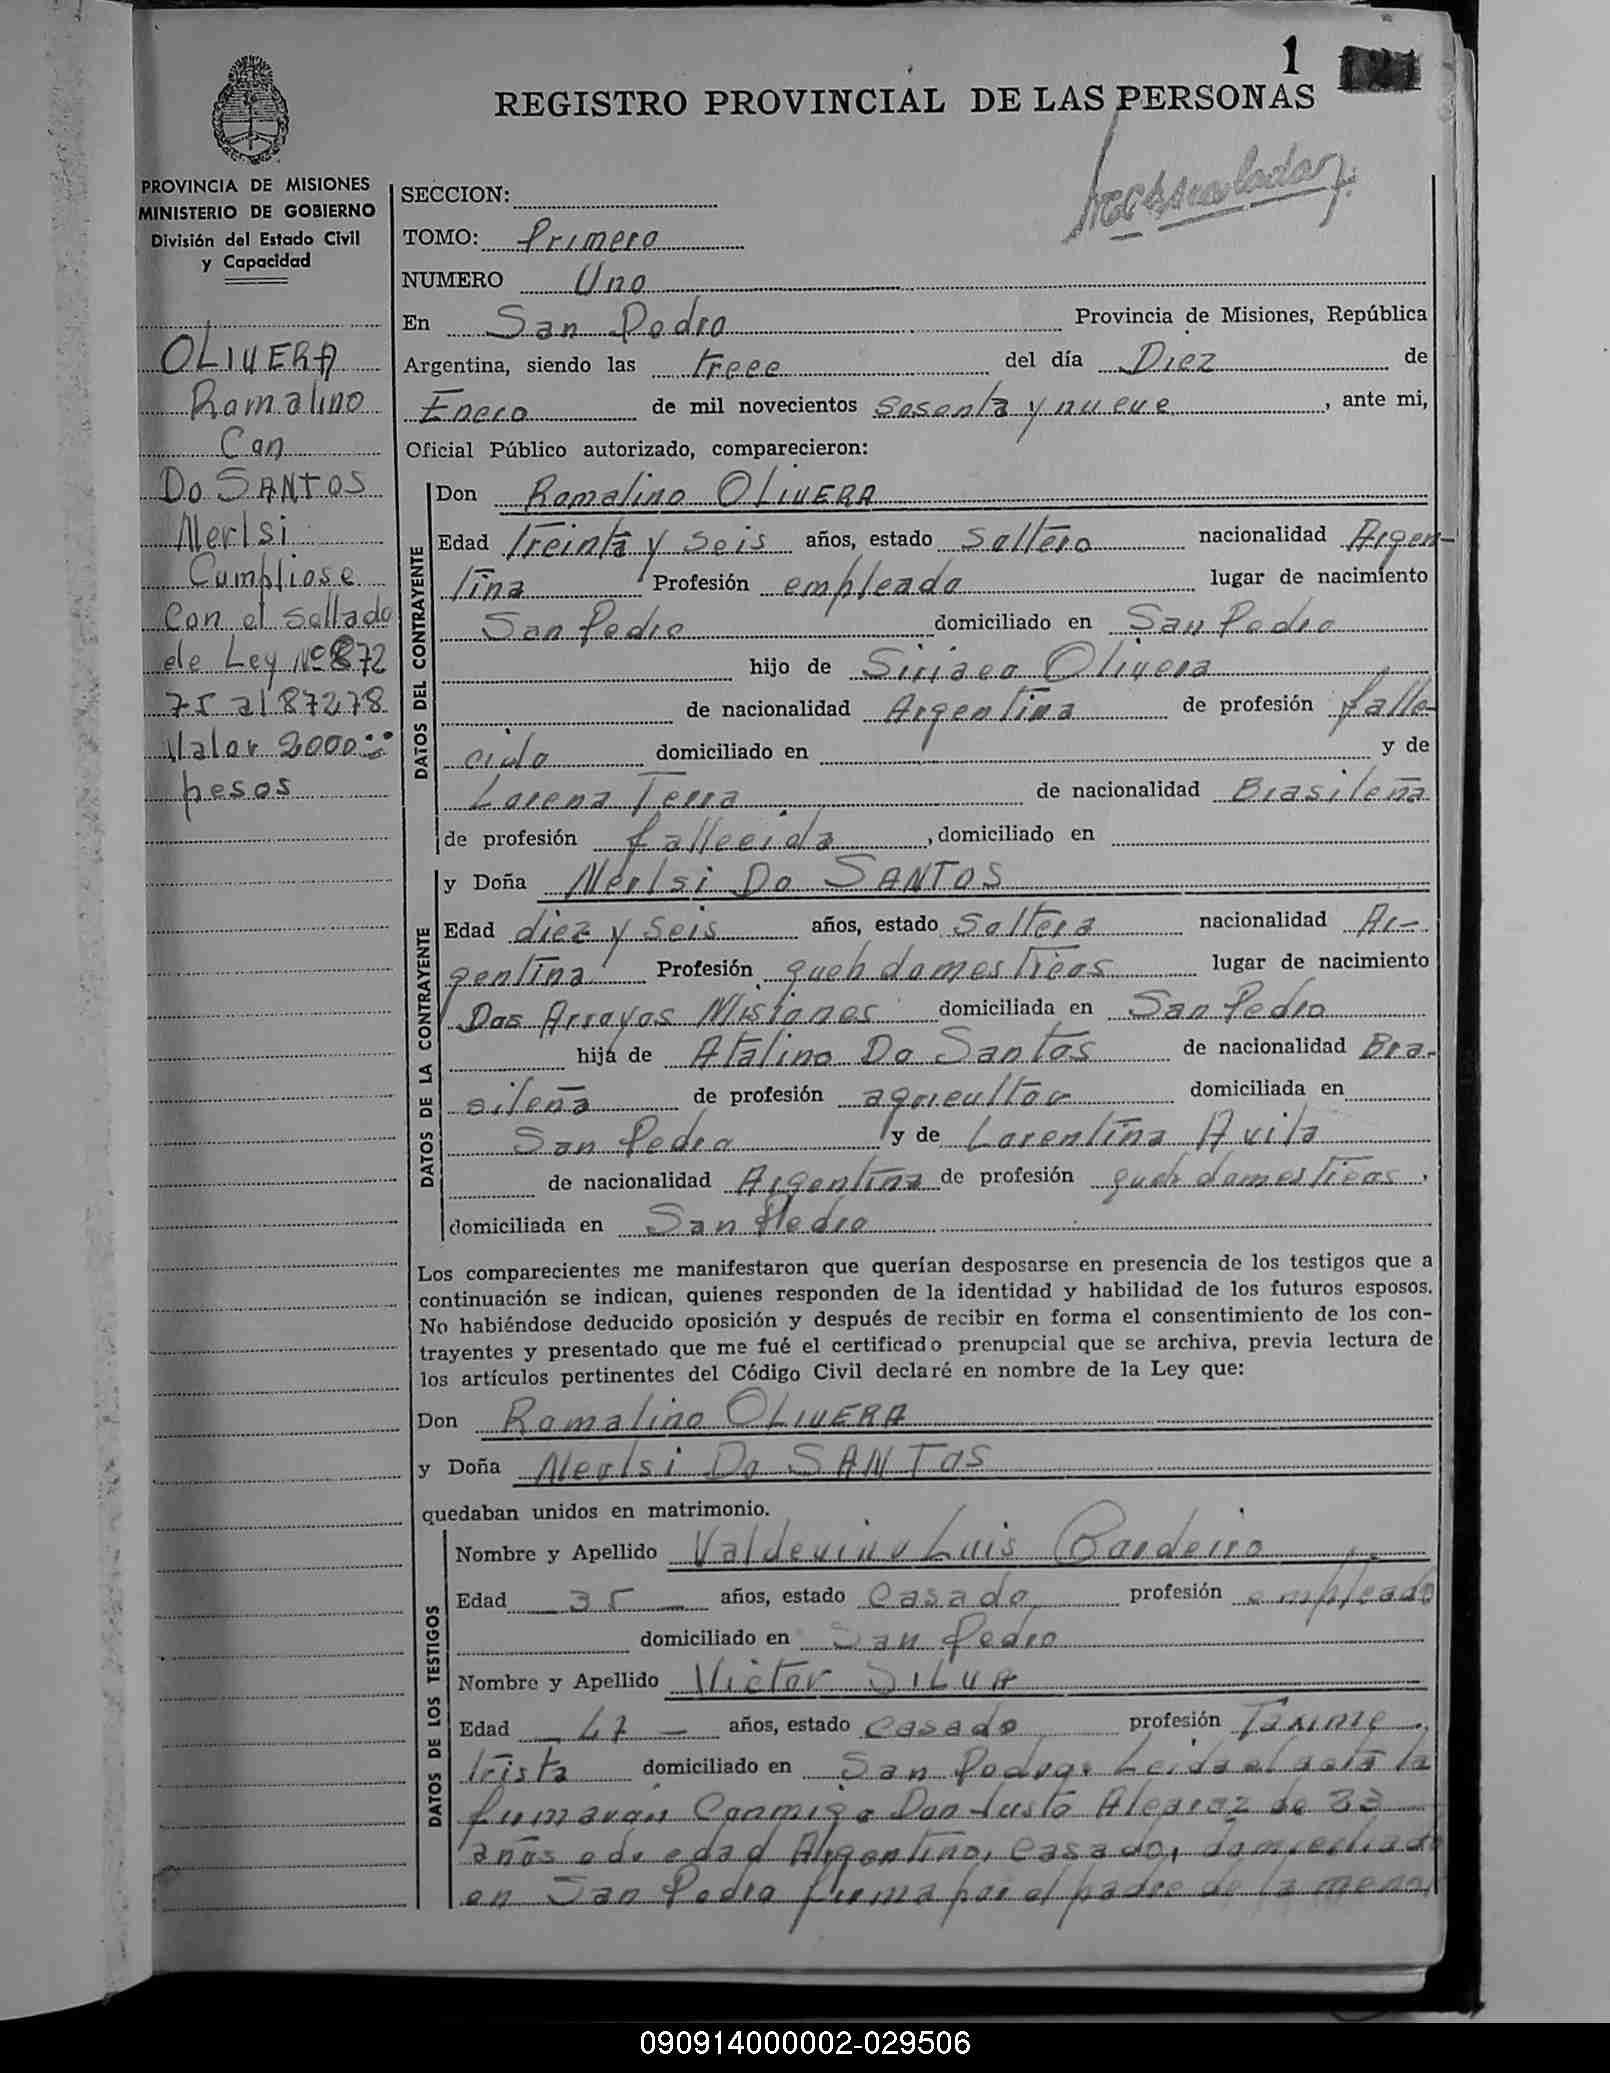 1
REGISTRO PROVINCIAL DE LAS PERSONAS
PROVINCIA DE MISIONES
MINISTERIO DE GOBIERNO
División del Estado Civil
y Capacidad
OLIVERA
Ramalino
Con
Do SANTOS
Nerlsi
Cumpliose
Con el Sellado
de Ley Nº 872
75 al 87278
Valor 2000
pesos
SECCION:
TOMO: Primero
NUMERO Uno
En San Pedro Provincia de Misiones, República
Argentina, siendo las trece del día Diez de
Enero de mil novecientos sesenta y nueve, ante mi,
Oficial Público autorizado, comparecieron:
DATOS DEL CONTRAYENTE
Don Ramalino OLIVERA
Edad Treinta y seis años, estado Soltero nacionalidad Argen-
tina Profesión empleado lugar de nacimiento
San Pedro domiciliado en San Pedro
hijo de Siriaco Olivera
de nacionalidad Argentina de profesión falle-
cido domiciliado en y de
Lorena Terra de nacionalidad Brasileña
de profesión fallecida, domiciliado en
DATOS DE LA CONTRAYENTE
y Doña Nerlsi Do SANTOS
Edad diez y seis años, estado Soltera nacionalidad Ar-
gentina Profesión queh domesticos lugar de nacimiento
Dos Arroyos Misiones domiciliada en San Pedro
hija de Atalino Do Santos de nacionalidad Bra-
sileña de profesión agricultor domiciliada en
San Pedro y de Lorentina Avila
de nacionalidad Argentina de profesión queh domesticos,
domiciliada en San Pedro
Los comparecientes me manifestaron que querían desposarse en presencia de los testigos que a
continuación se indican, quienes responden de la identidad y habilidad de los futuros esposos.
No habiéndose deducido oposición y después de recibir en forma el consentimiento de los con-
trayentes y presentado que me fué el certificado prenupcial que se archiva, previa lectura de
los artículos pertinentes del Código Civil declaré en nombre de la Ley que:
Don Ramalino OLIVERA
y Doña Nerlsi Do SANTOS
quedaban unidos en matrimonio.
DATOS DE LOS TESTIGOS
Nombre y Apellido Valdevino Luis
Edad 35 años, estado Casado profesión empleado
domiciliado en San Pedro
Nombre y Apellido Victor SILVA
Edad 47 años, estado Casado profesión Taxime
trista domiciliado en San Pedro. Leida el acta la
firmaran Conmigo Don Justo Alegraz de 33
años de edad Argentino, Casado, domiciliado
en San Pedro firma por el padre de la menor
090914000002-029506